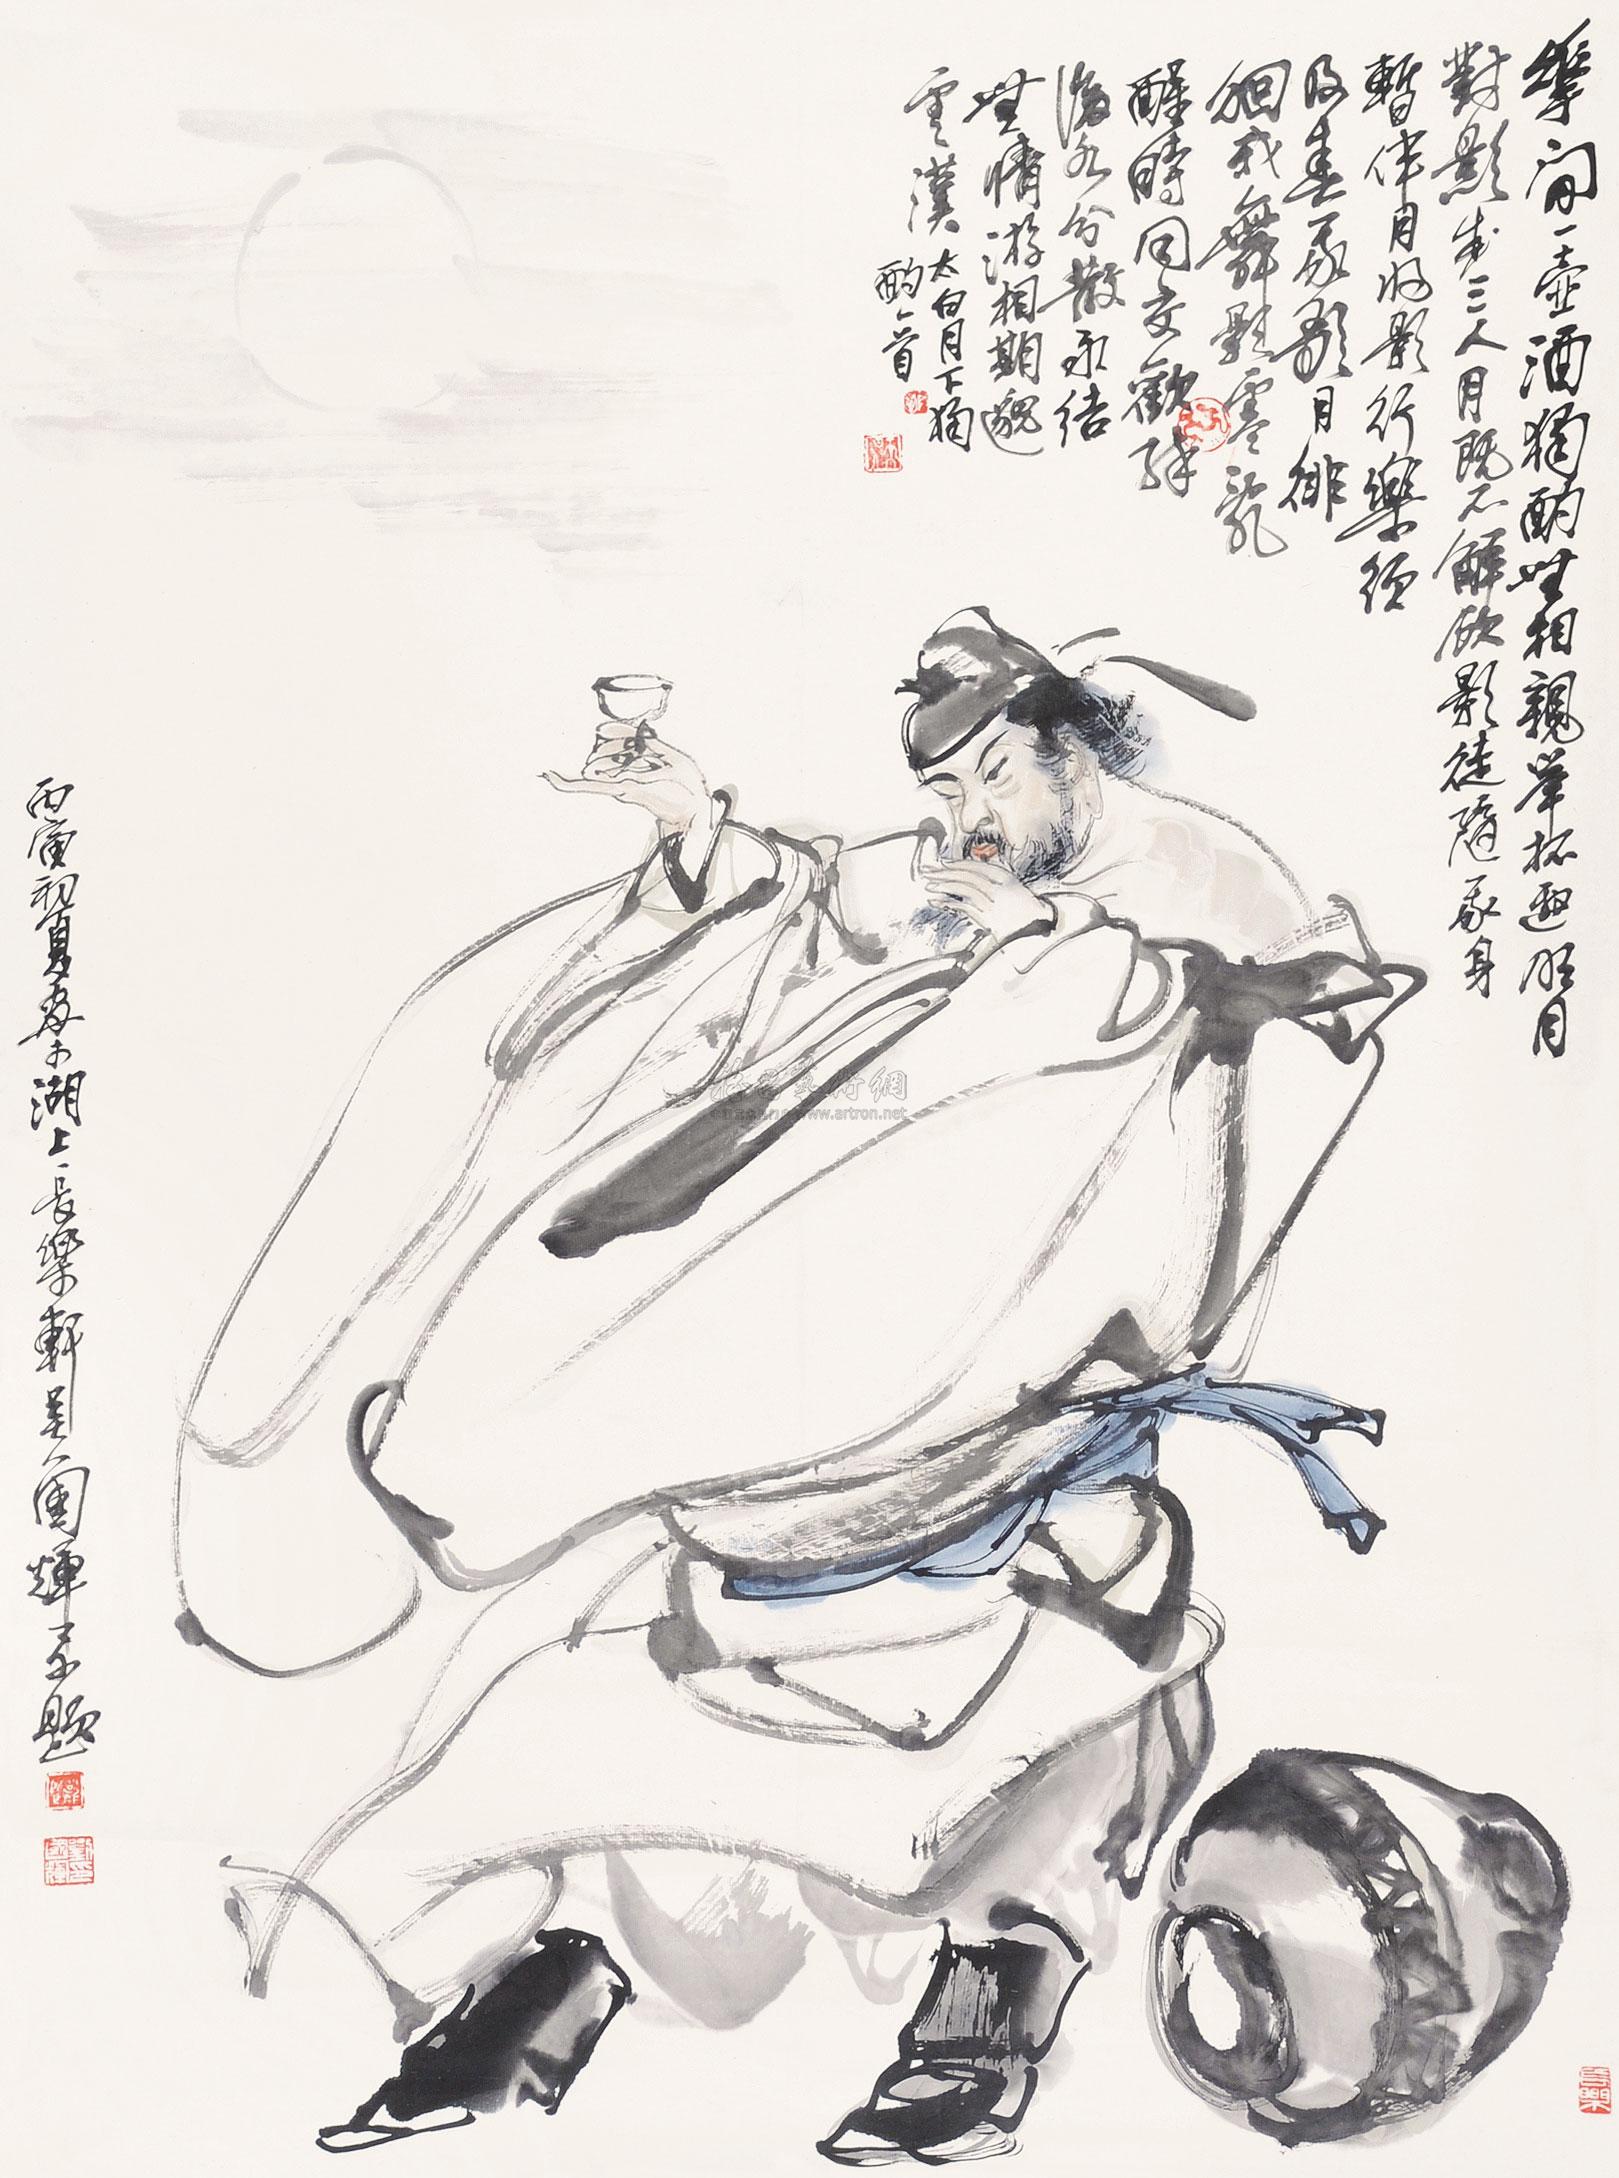 華間一壺酒獨酌無相親舉杯邀明月
對影成三人月既不解飲影徒隨我身
暫伴月將影行樂須
及春我歌月徘
徊我舞影零亂
醒時同交歡醉
後各分散永結
無情游相期邈
雲漢 太白月下獨
酌一首
丙寅初夏於湖上長樂軒主國輝題
www.artron.net